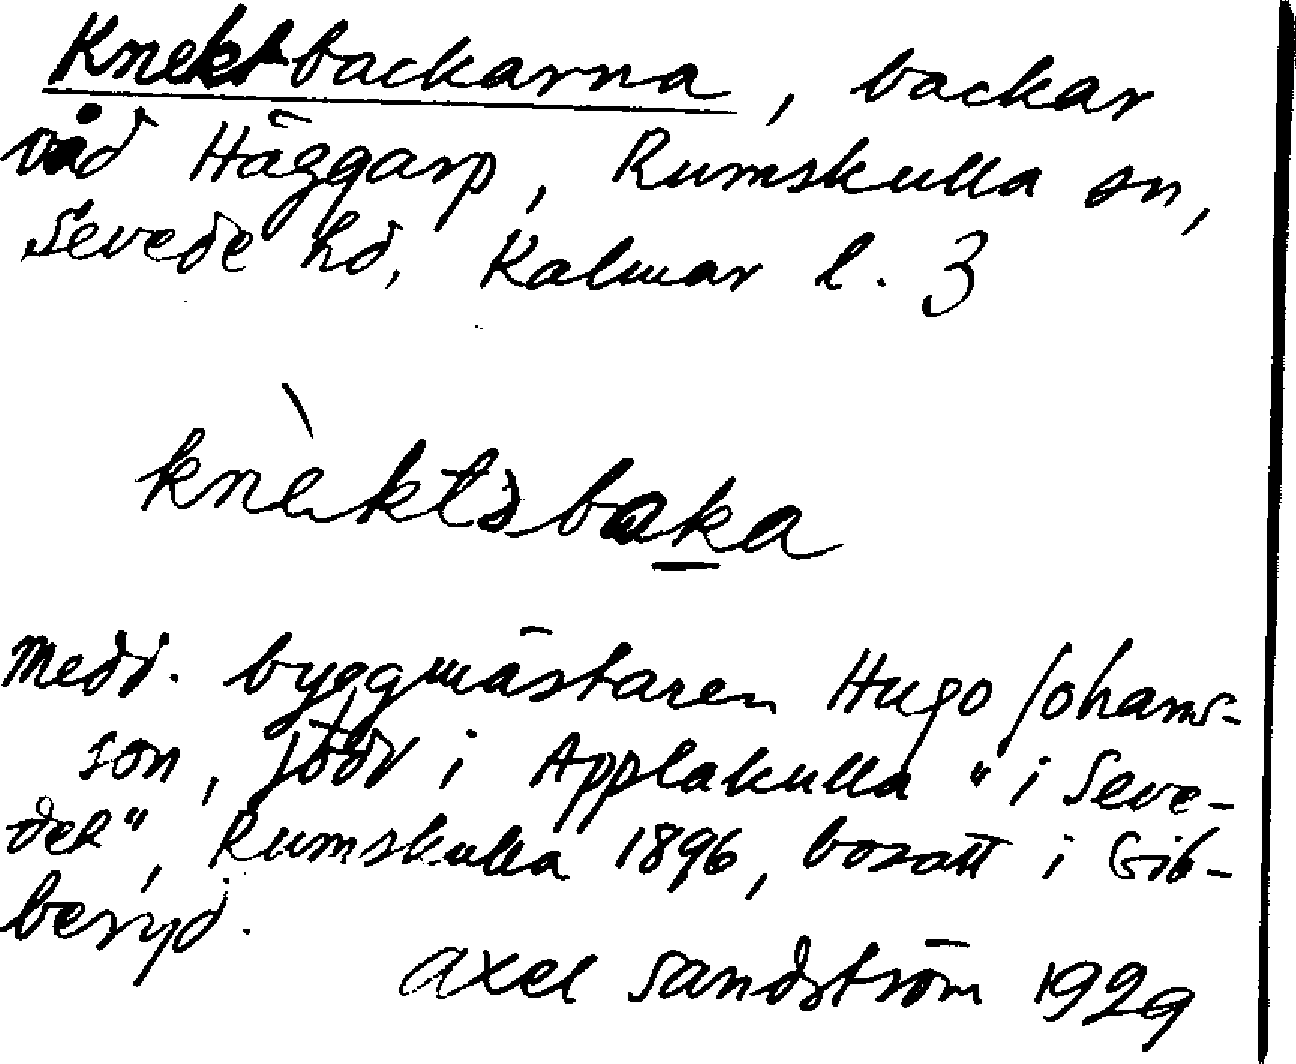 Knektbackarna, backar
vid Häggarp, Rumskulla sn,
Sevede hd, Kalmar l. 3
knèktsbaka
Medd. byggmästaren Hugo Johans-
son, född i Applakulla "i Seve-
det", Rumskulla 1896, bosatt i Gib-
beryd.
Axel Sandström 1929